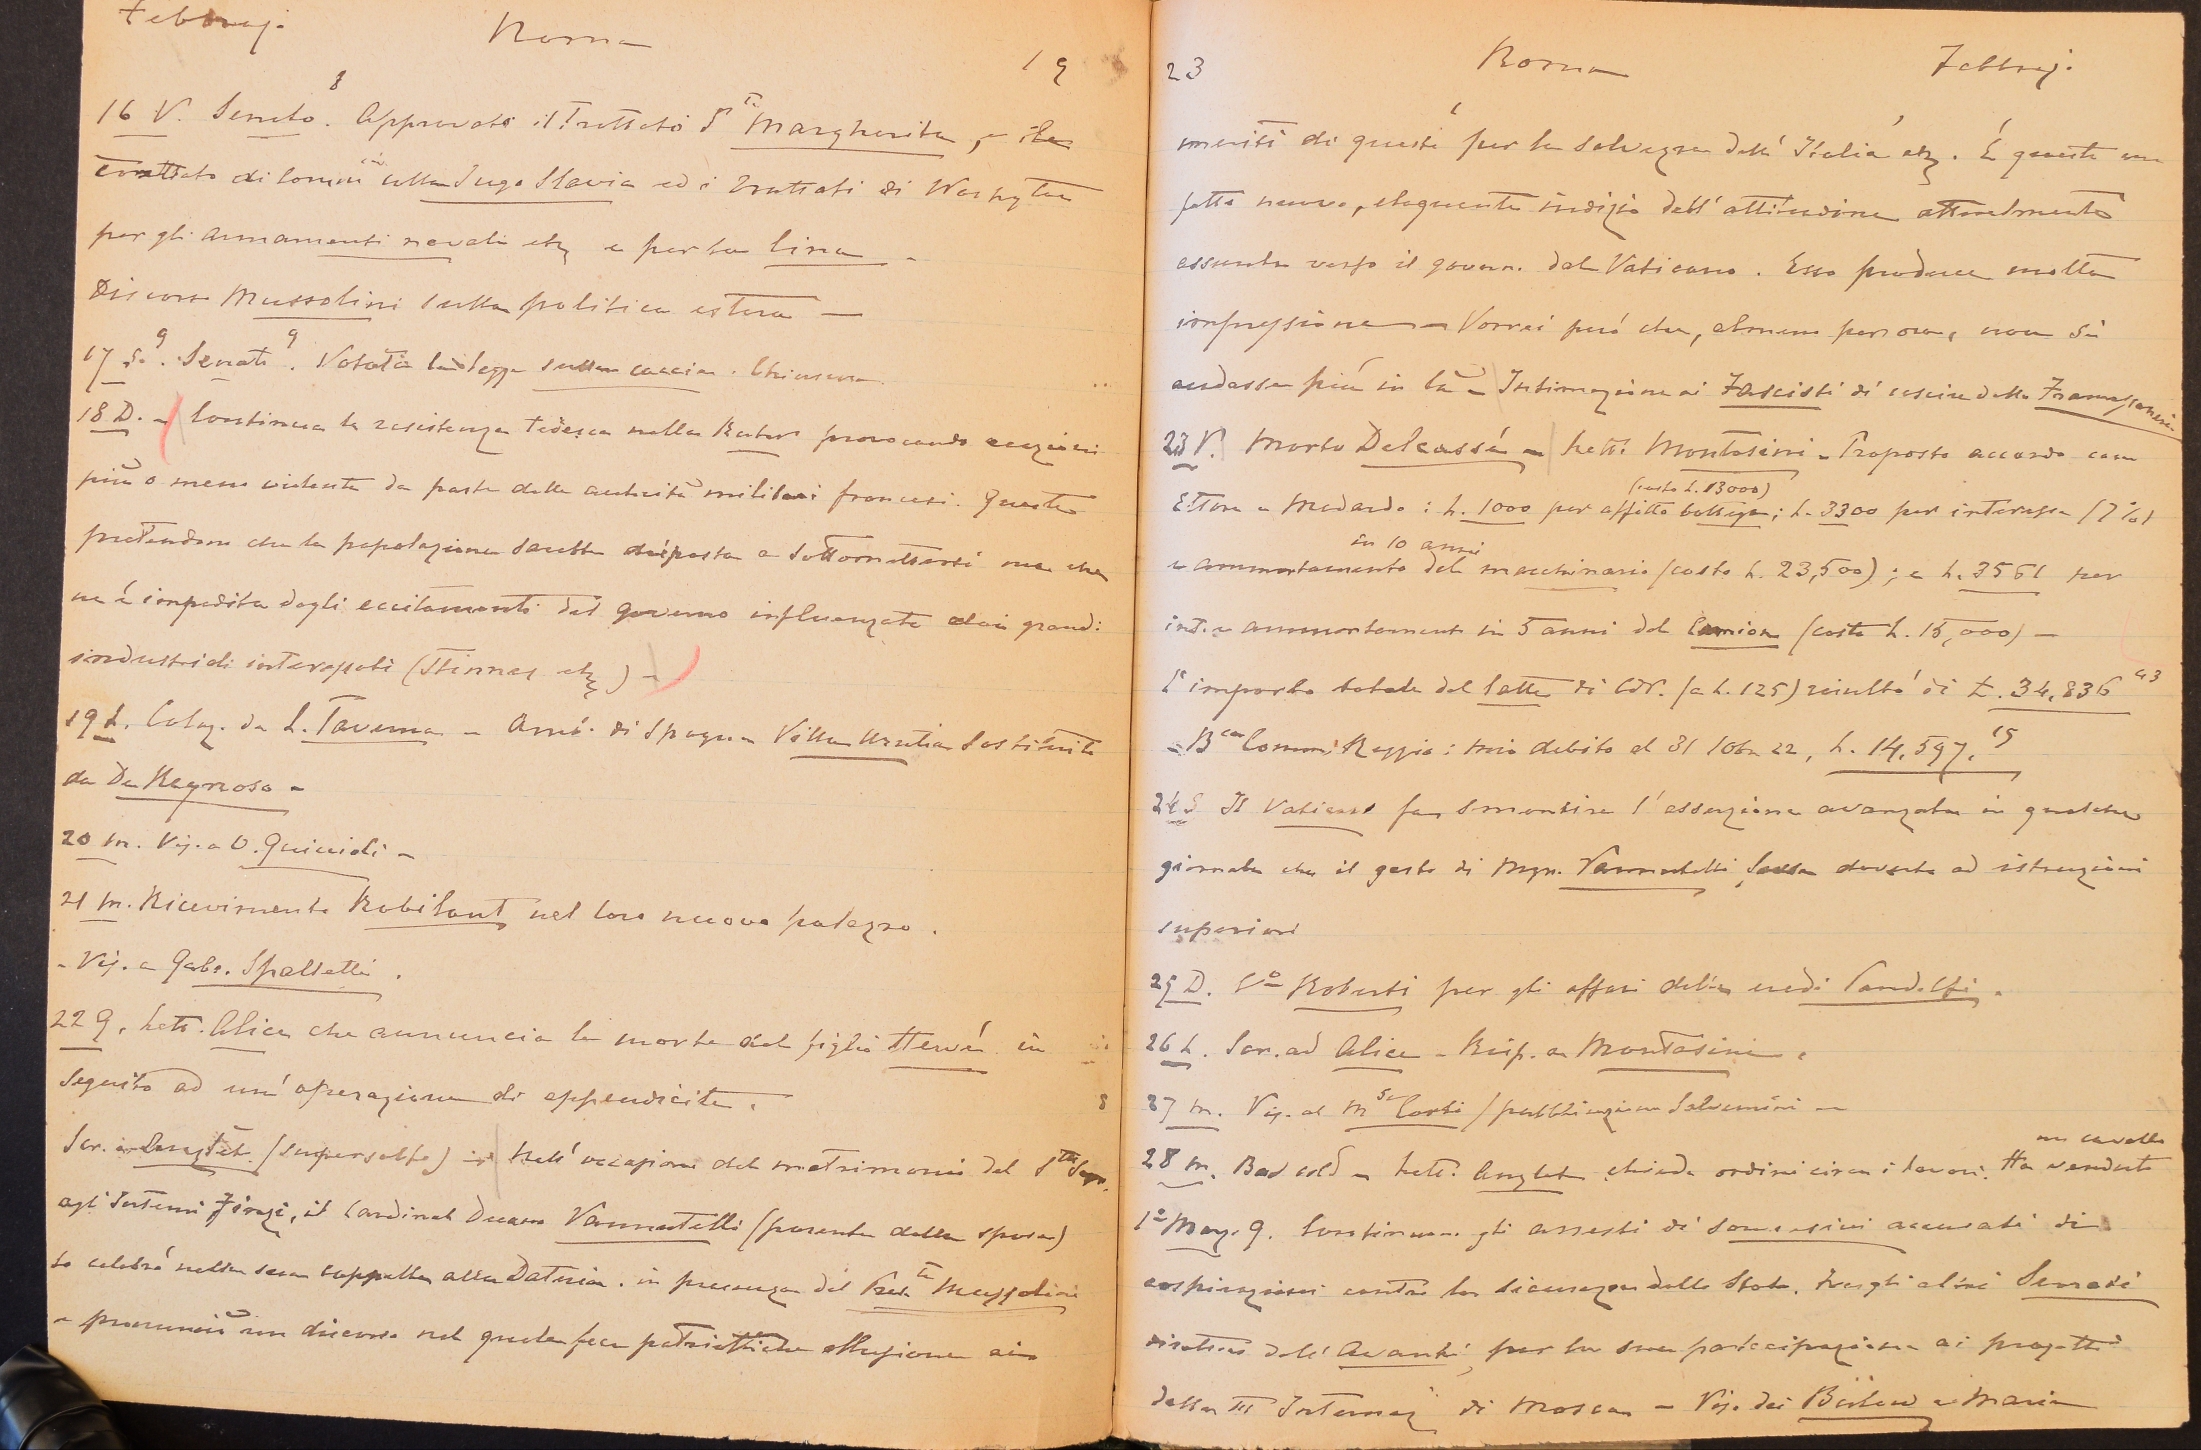 Febbraj. Roma 19
16 V. Senato 8. Approvato il Trattato S.ta Margherita, e il
trattato di comm. colla Jugo Slavia ed i trattati di Washgton
per gli armamenti navali etz e per la Cina.
Discorso Mussolini sulla politica estera —
17 S. 9. Senato 9. Votata la legge sulla caccia. Chiusura.
18 D. - Continua la resistenza tedesca nella Ruhr provocando reazioni
più o meno violente da parte delle autorità militari francesi. Queste
pretendono che la popolazione sarebbe disposta a sottomettersi ma che
ne è impedita dagli eccitamenti del governo influenzato dai grandi
industriali interessati (Stinnes etz) -
19 L. Colaz. da L. Taverna - Amb. di Spagna Villa Urrutia sostituito
da De Reynoso -
20 M. Vis. a O. Guiccioli -
21 M. Ricevimento Robilant nel loro nuovo palazzo.
- Vis. a Gabr. Spalletti.
22 G. Lett. Alice che annuncia la morte del figlio Hervé in
seguito ad un' operazione di appendicite.
Scr. a Anglet. (supersolfo) Nell' occasione del matrimonio del
agli Esterni Finzi, il Cardinal Decano Vannutelli (parente della sposa)
lo celebrò nella sua cappella alla Dateria. in presenza del Pres.te Mussolini
e pronunciò un discorso nel quale fece patriottiche allusione ai
23 Roma Febbraj.
meriti di questi per la salvezza dell' Italia etz. È questo un
fatto nuovo, eloquente indizio dell' attitudine attualmente
assunta verso il govern. dal Vaticano. Esso produce molta
impressione - Vorrei però che, almeno per ora, non si
andasse più in là - Intimazione ai Fascisti di uscire dalla Framassoneria
23 V. Morto Delcassé - Lett. Montasini - Proposto accordo con
(costo L. 13000)
Ettore e Medardo: L. 1000 per affitto bottega; L. 3300 per interesse (7%)
in 10 anni
e ammortamento del macchinario (costo L. 23,500); e L. 3561 per
int. e ammortamento in 5 anni del Camion (costo L. 15,000) —
L' importo totale del latte di Cdr. (a L. 125) risultò di L. 34,836 43
- B.ca Comm. Reggio: mio debito al 31 10bre 22, L. 14,597,15
24 S Il Vaticano fa smentire l' asserzione avanzata in qualche
giornale che il gesto di Mgn. Vannutelli fosse dovuto ad istruzioni
superiori
25 D. Roberti per gli affari delle eredi Pandolfi.
26 L. Scr. ad Alice - Risp. a Montasini.
27 M. Vis. al M.se Corti / pubblicazione Salvemini -
un cavallo
28 M. Bad cold - Lett. Anglet chiede ordini circa i lavori. Ha venduto
1° Marz. G. Continuano gli arresti di comunisti accusati di
cospirazioni contro la sicurezza dello Stato. Fra gli altri Serrati
direttore dell' Avanti, per la sua partecipazione ai progetti
della III Internaz di Mosca - Vis. dei Bülow e Maria